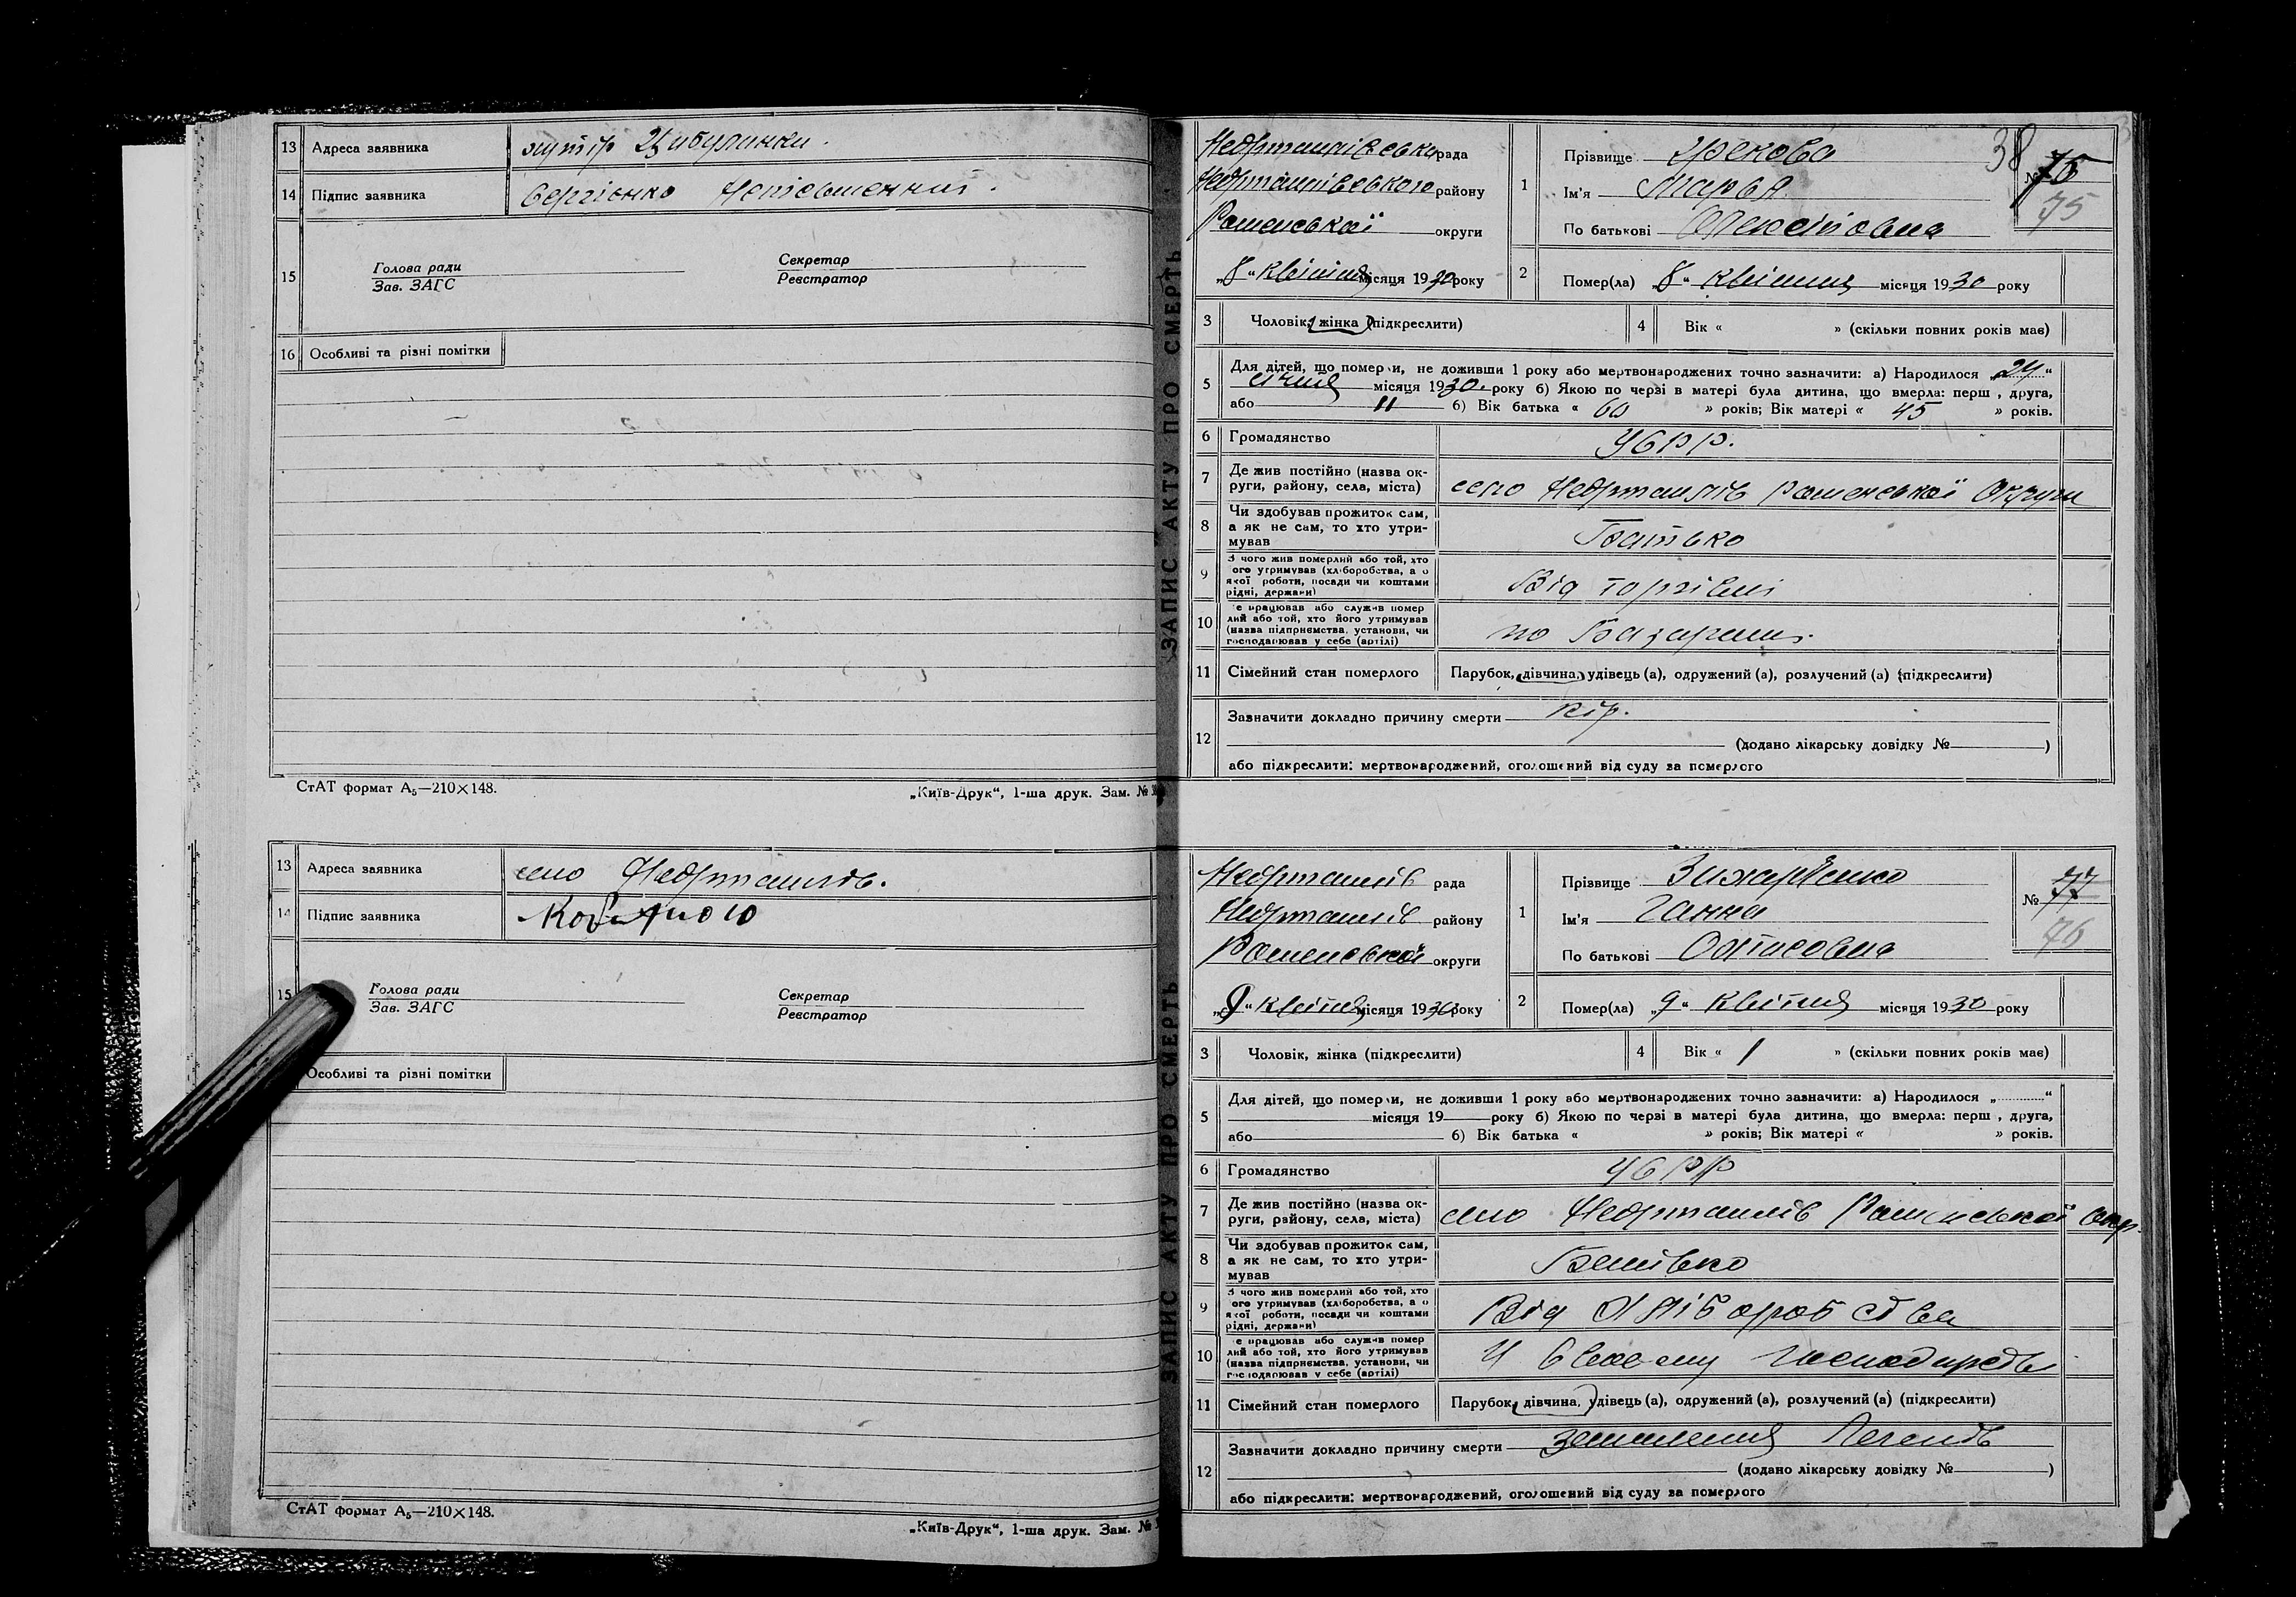 13 Адреса заявника хутір Цибулинки.
14 Підпис заявника Сергієнко Неписьменний.
15 Голова ради
Зав. ЗАГС
Секретар
Реєстратор
16 Особливі та різні помітки
СтАТ формат А₅—210×148.
„Київ-Друк“, 1-ша друк. Зам. №
13 Адреса заявника село
14 Підпис заявника
15 Голова ради
Зав. ЗАГС
Секретар
Реєстратор
Особливі та різні помітки
СтАТ формат А₅—210×148.
„Київ-Друк“, 1-ша друк. Зам. №
ЗАПИС АКТУ ПРО СМЕРТЬ
38
рада
району
Роменської округи
„8“ квітня місяця 1930 року
1 Прізвище
Ім'я Марья
По батькові
№ 76
75
2 Помер(ла) „8“ квітня місяця 1930 року
3 Чоловік, жінка (підкреслити)
4 Вік « » (скільки повних років має)
5 Для дітей, що померли, не доживши 1 року або мертвонароджених точно зазначити: а) Народилося „24“
січня місяця 1930 року б) Якою по черзі в матері була дитина, що вмерла: перш , друга,
або 11 б) Вік батька « 60 » років; Вік матері « 45 » років.
6 Громадянство УСРР.
7 Де жив постійно (назва ок-
руги, району, села, міста) село Роменської Округи
8 Чи здобував прожиток сам,
а як не сам, то хто утри-
мував Батько
9 З чого жив померлий або той, хто
ого утримував (хліборобства, а о
якої роботи, посади чи коштами
рідні, держави) Від торгівлі
10 е працював або служив помер
лий або той, хто його утримував
(назва підприємства, установи, чи
господарював у себе (артілі) по базарам.
11 Сімейний стан померлого Парубок, дівчина, удівець (а), одружений (а), розлучений (а) (підкреслити)
12 Зазначити докладно причину смерти кір.
(додано лікарську довідку № )
або підкреслити: мертвонароджений, оголошений від суду за померлого
ЗАПИС АКТУ ПРО СМЕРТЬ
рада
району
Роменської округи
„9“ квітня місяця 1930 року
1 Прізвище
Ім'я Ганна
По батькові
№ 77
76
2 Помер(ла) „9“ квітня місяця 1930 року
3 Чоловік, жінка (підкреслити)
4 Вік « 1 » (скільки повних років має)
5 Для дітей, що померли, не доживши 1 року або мертвонароджених точно зазначити: а) Народилося „ “
місяця 19 року б) Якою по черзі в матері була дитина, що вмерла: перш , друга,
або б) Вік батька « » років; Вік матері « » років.
6 Громадянство УСРР
7 Де жив постійно (назва ок-
руги, району, села, міста) село Роменської окр.
8 Чи здобував прожиток сам,
а як не сам, то хто утри-
мував Батько
9 З чого жив померлий або той, хто
ого утримував (хліборобства, а о
якої роботи, посади чи коштами
рідні, держави) Від хліборобства
10 е працював або служив помер
лий або той, хто його утримував
(назва підприємства, установи, чи
господарював у себе (артілі) У своєму господарстві
11 Сімейний стан померлого Парубок, дівчина, удівець (а), одружений (а), розлучений (а) (підкреслити)
12 Зазначити докладно причину смерти запалення легенів
(додано лікарську довідку № )
або підкреслити: мертвонароджений, оголошений від суду за померлого